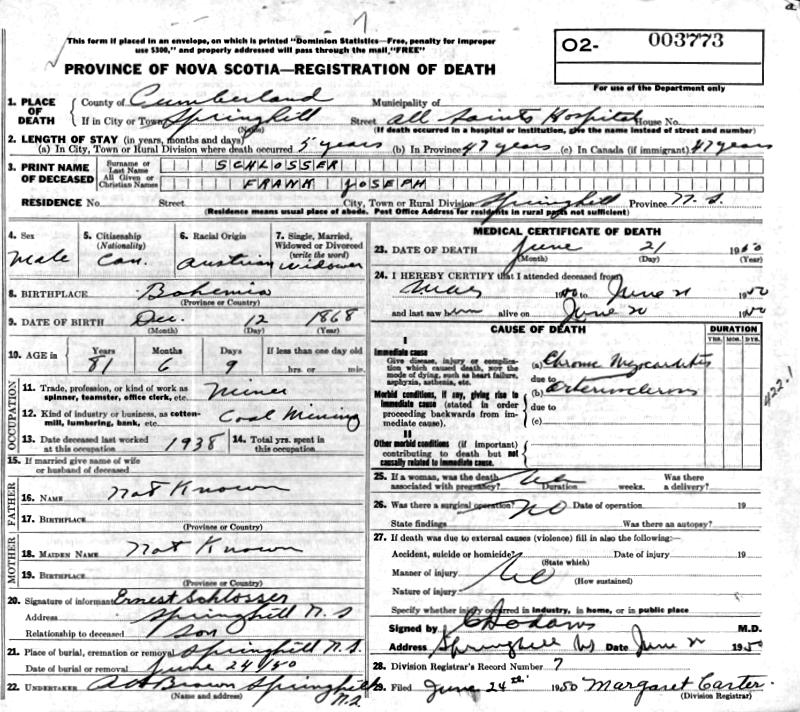 7
This form if placed in an envelope, on which is printed "Dominion Statistics—Free, penalty for improper
use $300," and properly addressed will pass through the mail, "FREE"
O2- 003773
For use of the Department only
PROVINCE OF NOVA SCOTIA—REGISTRATION OF DEATH
1. PLACE OF DEATH County of Cumberland Municipality of
If in City or Town Springhill (Name) Street All Saints Hospital House No.
(If death occurred in a hospital or institution, give the name instead of street and number)
2. LENGTH OF STAY (in years, months and days)
(a) In City, Town or Rural Division where death occurred 5 years (b) In Province 47 years (c) In Canada (if immigrant) 47 years
3. PRINT NAME OF DECEASED Surname or Last Name SCHLOSSER
All Given or Christian Names FRANK JOSEPH
RESIDENCE No. Street City, Town or Rural Division Springhill Province N.S.
(Residence means usual place of abode. Post Office Address for residents in rural parts not sufficient)
4. Sex Male
5. Citizenship (Nationality) Can.
6. Racial Origin Austrian
7. Single, Married, Widowed or Divorced (write the word) Widower
8. BIRTHPLACE Bohemia
(Province or Country)
9. DATE OF BIRTH Dec. 12 1868
(Month) (Day) (Year)
10. AGE in Years 81 Months 6 Days 9 If less than one day old
hrs. or min.
OCCUPATION
11. Trade, profession, or kind of work as spinner, teamster, office clerk, etc. Miner
12. Kind of industry or business, as cotten-mill, lumbering, bank, etc. Coal Mining
13. Date deceased last worked at this occupation 1938 14. Total yrs. spent in this occupation
15. If married give name of wife or husband of deceased
FATHER
16. NAME Not Known
17. BIRTHPLACE
(Province or Country)
MOTHER
18. MAIDEN NAME Not Known
19. BIRTHPLACE
(Province or Country)
20. Signature of informant Ernest Schlosser
Address Springhill N.S
Relationship to deceased Son
21. Place of burial, cremation or removal Springhill N.S.
Date of burial or removal June 24/50
22. UNDERTAKER Brown Springhill N.S
(Name and address)
MEDICAL CERTIFICATE OF DEATH
23. DATE OF DEATH June 21 1950
(Month) (Day) (Year)
24. I HEREBY CERTIFY that I attended deceased from
1950 to June 21 1950
and last saw him alive on June 20 1950
CAUSE OF DEATH DURATION
YRS. MOS. DYS.
I
Immediate cause
Give disease, injury or complication which caused death, not the mode of dying, such as heart failure, asphyxia, asthenia, etc.
(a) Chronic Myocarditis
due to
Morbid conditions, if any, giving rise to immediate cause (stated in order proceeding backwards from immediate cause).
(b) arteriosclerosis
due to
(c)
422.1
II
Other morbid conditions (if important) contributing to death but not causally related to immediate cause.
25. If a woman, was the death associated with pregnancy? No Duration weeks. Was there a delivery?
26. Was there a surgical operation? No Date of operation 19
State findings Was there an autopsy?
27. If death was due to external causes (violence) fill in also the following:—
Accident, suicide or homicide? Date of injury 19
(State which)
Manner of injury No
(How sustained)
Nature of injury
Specify whether injury occurred in industry, in home, or in public place
Signed by M.D.
Address Springhill NS Date June 21 1950
28. Division Registrar's Record Number 7
29. Filed June 24th 1950 Margaret Carter
(Division Registrar)